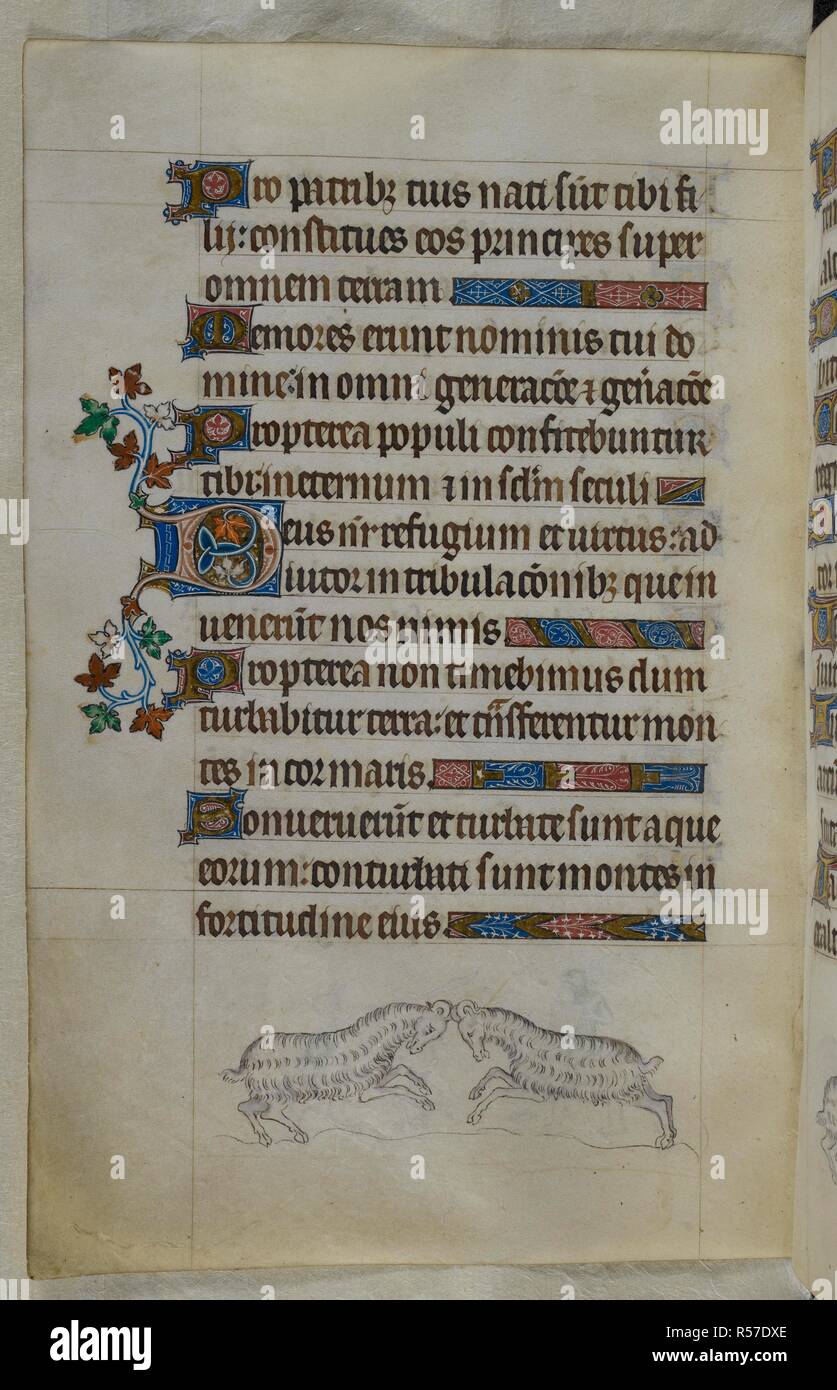 Pro patribꝫ tuis nati sūt tibi fi
lij: constitues eos principes super
omnem terram
Memores erunt nominis tui do
mine: in omni generacōe ⁊ gen̄acōe
Propterea populi confitebuntur
tibi: in eternum ⁊ in sc̄lm seculi
Deus nr̄ refugium et uirtus: ad
iutor in tribulacōnibꝫ que in
uenerūt nos nimis.
Propterea non timebimus dum
turbabitur terra: et tn̄sferentur mon
tes in cor maris.
Sonueruerūt et turbate sunt aque
eorum: conturbati sunt montes in
fortitudine eius.
alamy
Image ID: R57DXE
www.alamy.com